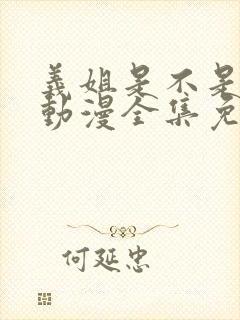 義姐是不是
動漫全集免
何延忠